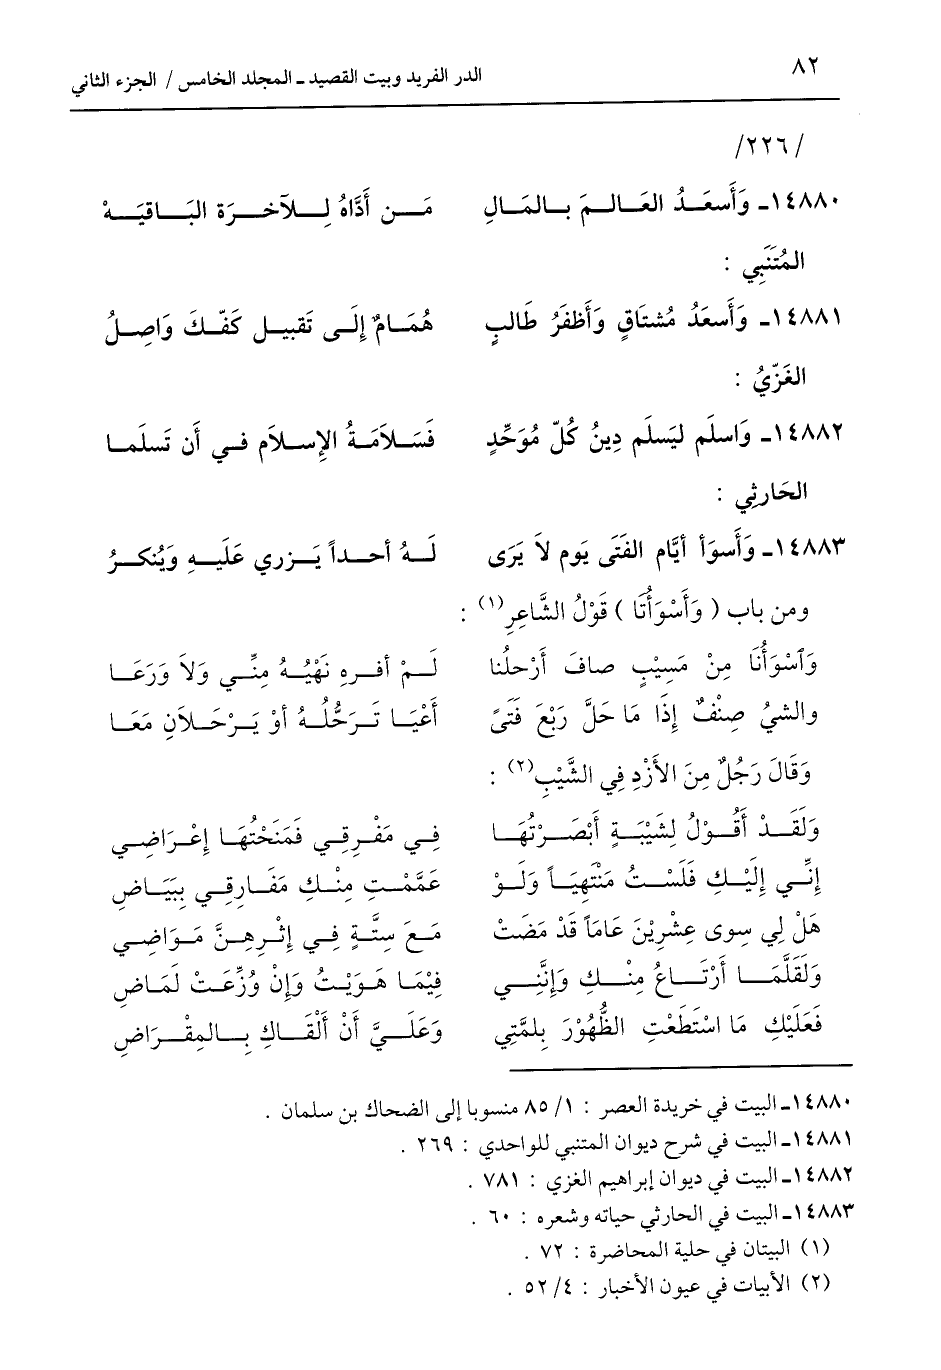 ٨٢
الدر الفريد وبيت القصيد ـ المجلد الخامس / الجزء الثاني
/٢٢٦/
١٤٨٨٠ـ وَأَسعَدُ العَالمَ بالمَالِ مَن أَدَّاهُ لِلآخرَة البَاقيَة
المُتَنَبِي :
١٤٨٨١ـ وَأَسعَدُ مُشتَاقٍ وَأَظفَرُ طَالبٍ هُمَامٌ إلَى تَقبيل كَفّكَ وَاصِلُ
الغَزّيُ :
١٤٨٨٢ـ وَاسلَم ليَسلَم دِينُ كُلّ مُوَحِّدٍ فَسَلاَمَةُ الإسلاَم في أَن تَسلَما
الحَارثِي :
١٤٨٨٣ـ وَأَسوَأ أيَّام الفَتَى يَوم لاَ يَرَى لَهُ أحداً يَزري عَلَيه وَيُنكرُ
ومن باب ( وَأَسْوَأُتَا ) قَوْلُ الشَّاعِرِ(١) :
وَآسْوَأُنَا مِنْ مَسِيْبٍ صافَ أرْحلُنا لَمْ أفره نَهْيُهُ مِنِّي وَلاَ وَرَعَا
والشيُ صِنْفٌ إذَا مَا حَلَّ رَبْعَ فَتَىً أعْيَا تَرَحُّلُهُ أوْ يَرْحَلاَنِ مَعَا
وَقَالَ رَجُلٌ مِنَ الأَزْدِ فِي الشَّيْبِ(٢) :
وَلَقَدْ أقُوْلُ لِشَيْبَةٍ أبْصَرْتُهَا فِي مَفْرِقِي فَمَنَحْتُهَا إعْرَاضِي
إنِّي إلَيْكِ فَلَسْتُ مَنْتَهِيَاً وَلَوْ عَمَّمْتِ مِنْكِ مَفَارِقِي بِبَيَاضِ
هَلْ لِي سِوى عِشْرِيْنَ عَامَاً قَدْ مَضَتْ مَعَ سِتَّةٍ فِي إثْرِهِنَّ مَوَاضِي
وَلَقَلَّمَا أرْتَاعُ مِنْكِ وَإنَّنِي فِيْمَا هَوَيْتُ وَإنْ وُزِّعَتْ لَمَاضِ
فَعَلَيْكِ مَا اسْتَطَعْتِ الظُّهُوْرَ بِلمَّتِي وَعَلَيَّ أنْ ألْقَاكِ بِالمِقْرَاضِ
١٤٨٨٠ـ البيت في خريدة العصر : ١/ ٨٥ منسوبا إلى الضحاك بن سلمان .
١٤٨٨١ـ البيت في شرح ديوان المتنبي للواحدي : ٢٦٩ .
١٤٨٨٢ـ البيت في ديوان إبراهيم الغزي : ٧٨١ .
١٤٨٨٣ـ البيت في الحارثي حياته وشعره : ٦٠ .
(١) البيتان في حلية المحاضرة : ٧٢ .
(٢) الأبيات في عيون الأخبار : ٤/ ٥٢ .